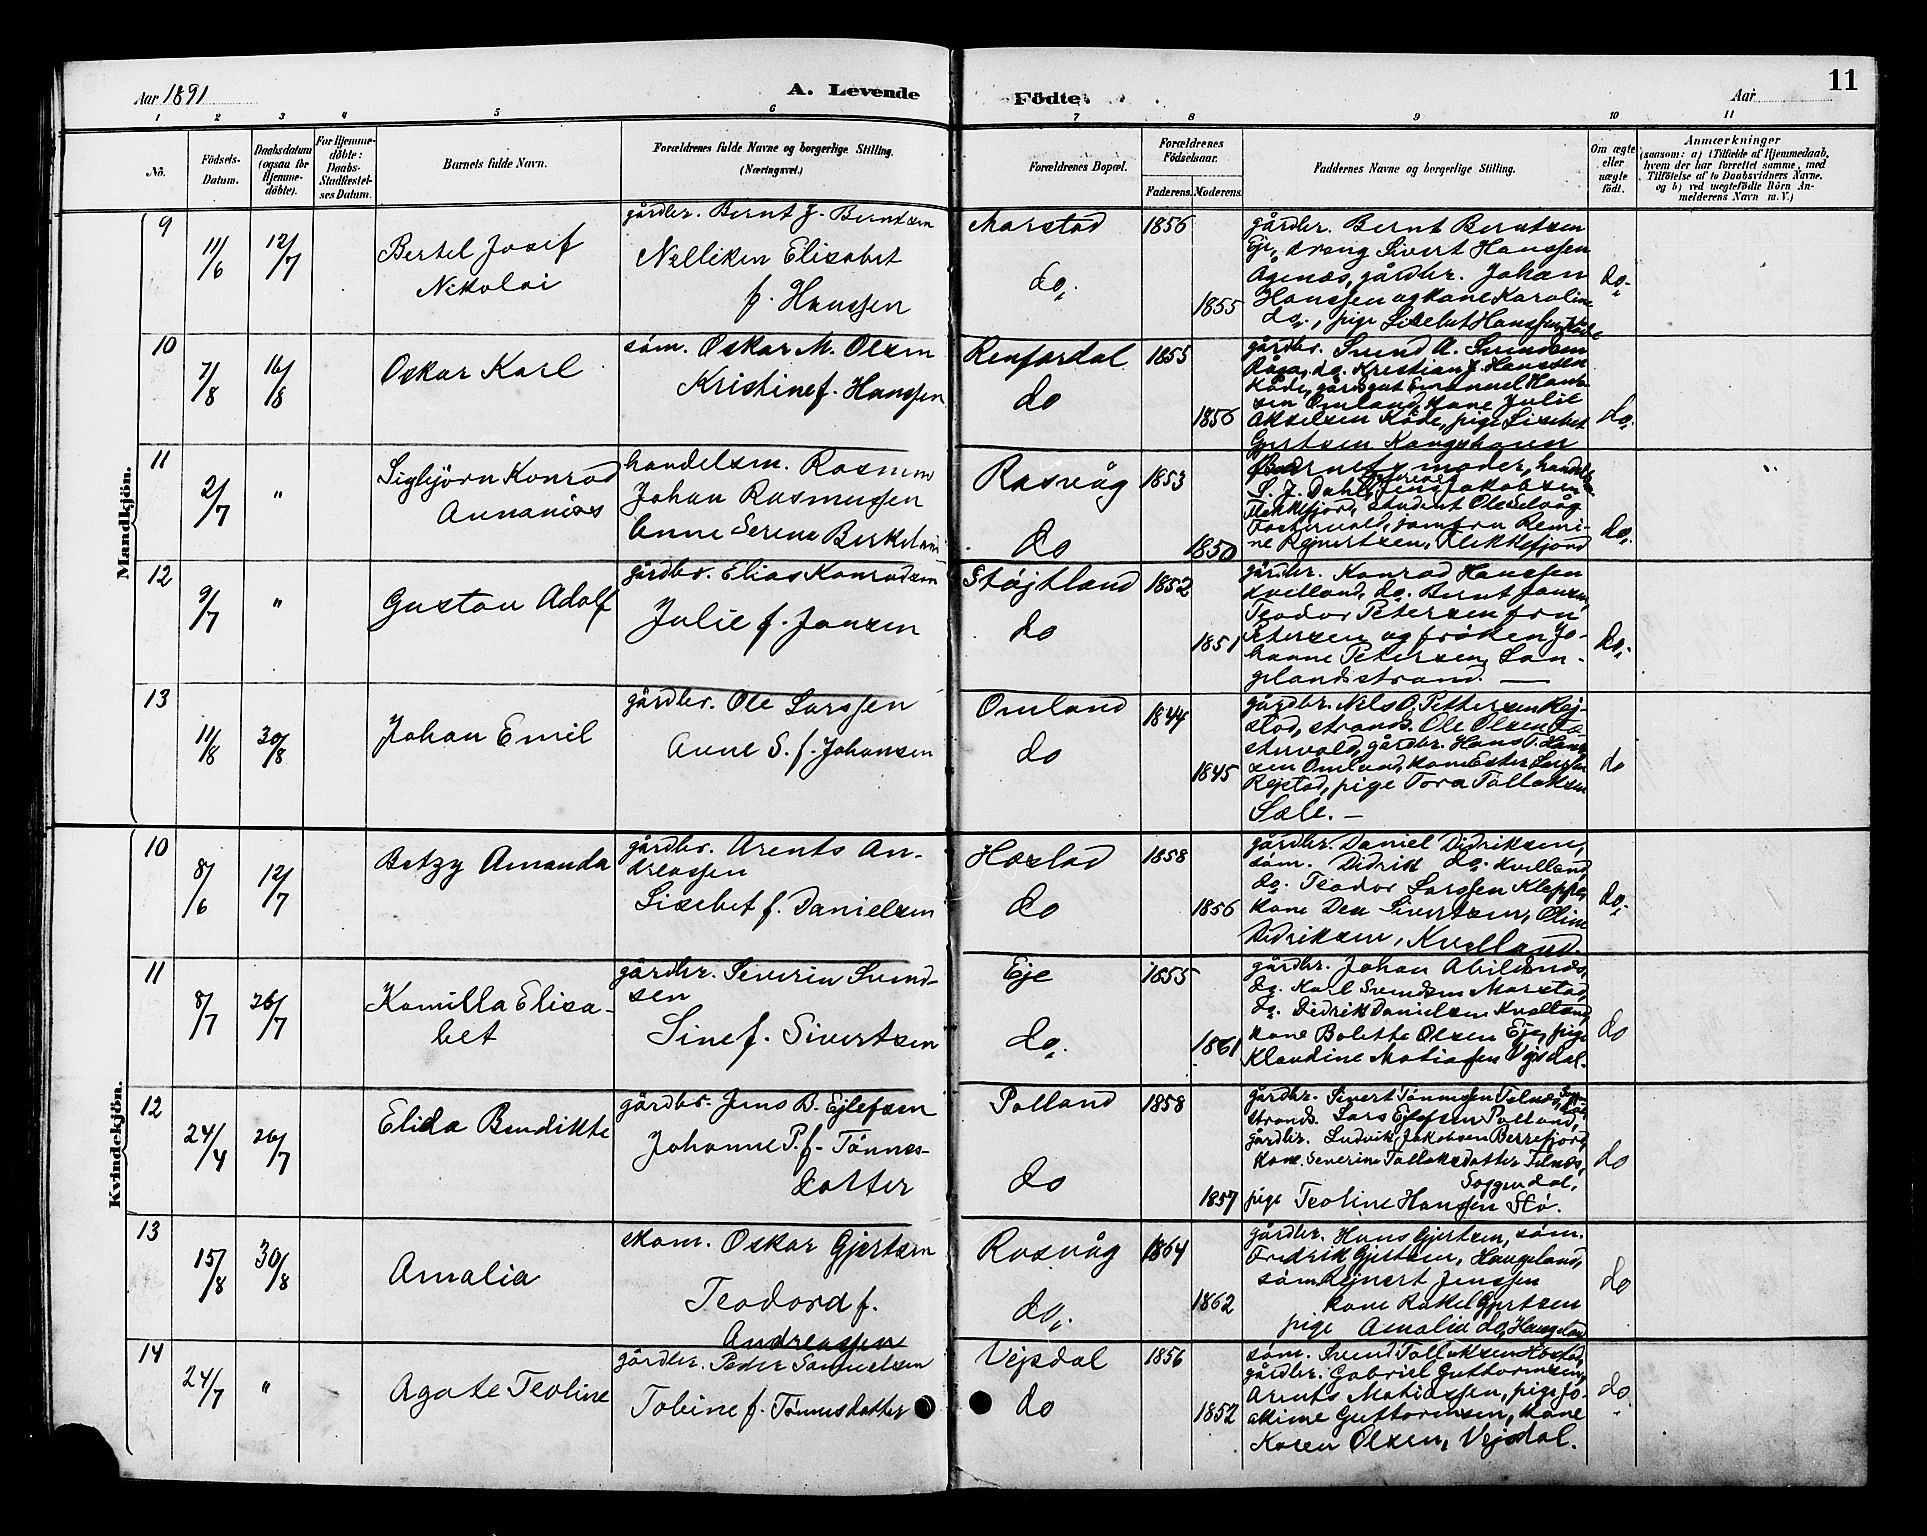 Aar 1891
A. Levende
Födte.
Aar
11
1 2 3 4 5 6 7 8 9 10 11
Nö.
Födsels-
Datum.
Daabsdatum
(ogsaa for
Hjemme-
döbte).
For Hjemme-
döbte:
Daabs-
Stadfæstel-
ses Datum.
Barnets fulde Navn.
Forældrenes fulde Navne og borgerlige Stilling.
(Næringsvei.)
Forældrenes Bopæl.
Forældrenes
Födselsaar.
Faderens. Moderens.
Faddernes Navne og borgerlige Stilling.
Om ægte
eller
uægte
födt.
Anmærkninger
(saasom: a) i Tilfælde af Hjemmedaab,
hvem der har forrettet samme, med
Tilföielse af to Daabsvidners Navne,
og b) ved uægtefödte Börn An-
melderens Navn m. V.)
Mandkjön.
9
11/6 12/7
Bertel Josif
Nikolai
gårdbr. Bernt J. Berntsen
Nelliken Elisabet
f. Hanssen
Marstad
do.
1856
1855
gårdbr. Bernt Berntsen
Eje, dreng Sivert Hanssen
Agenæs, gårdbr. Johan
Hanssen og kone Karoline
do., pige Lisebet Hanssen
do.
10
7/8 16/8
Oskar Karl
söm. Oskar M. Olsen
Kristine f. Hanssen
Renfardal
do
1855
1856
gårdbr. Svend A. Svendsen
Råga, do. Kristian J. Hanssen
Kåde, gårdsgut Emanuel Han-
sen Omland, kone Julie
Akselsen Kåde, pige Lisebet
Gjertsen Kongshavn
do.
11
2/7 "
Sigbjörn Konrad
Annanias
handelsm. Rasmus
Johan Rasmussen
Anne Serena Berkeland
Rasvåg
do
1853
1850
Barnets moder, handelsm.
S. J. Dahl, Jens Jakobsen
Flekkefjord, student Ole Selvåg
Fostervold, jomfru Remi-
ne Rejnertsen, Flekkefjord
do.
12
9/7 "
Gustav Adolf
gårdbr. Elias Konradsen
Julie f. Jansen
Stöjtland
do
1852
1851
gårdbr. Konrad Hanssen
Kvelland, do. Bernt Jansen,
Teodor Petersen fru
Petersen og fröken Jo-
hanne Petersen, Lan-
gelandsstrand. —
do.
13
11/8 30/8
Johan Emil
gårdbr. Ole Larssen
Anne S. f. Johansen
Omland
do
1844
1845
gårdbr. Nels O. Pettersen Rej-
stad, strands. Ole Olsen Fo-
stervold, gårdbr. Hans T. Han-
sen Omland, kone Ester Larssen
Rejstad, pige Tora Tollaksen
Sæle. —
do
Kvindekjön.
10
8/6 12/7
Betzy Amanda
gårdbr. Arents An-
dreassen
Lisebet f. Danielsen
Hæstad
do
1858
1856
gårdbr. Daniel Didriksen,
söm. Didrik do. Kvelland,
do. Teodor Larssen Kleppe,
kone Dea Sivertsen, Oline
Didriksen, Kvelland.
do.
11
8/7 26/7
Kamilla Elisa-
bet
gårdbr. Siverin Svend-
sen
Sine f. Sivertsen
Eje
do.
1855
1861
gårdbr. Johan Abilsnæs,
do. Karl Svendsen Marstad,
do. Didrik Danielsen Kvelland,
kone Bolette Olsen Eje, pige
Klaudine Matiassen Vejsdal.
do
12
24/4 26/7
Elida Bendikte
gårdbr. Jens B. Ejlefsen
Johanne P. f. Tönnes-
datter
Polland
do
1858
1857
gårdbr. Sivert Tönnessen Tilnæs,
strands. Lars Ejlefsen Polland,
gårdbr. Ludvik Jakobsen Berrefjord,
kone Severine Tollaksdatter Tilnæs,
Soggendal,
pige Teoline Hanssen Stö.
do
13
15/8 30/8
Amalia
skom. Oskar Gjertsen
Teodora f.
Andreassen
Rasvåg
do.
1864
1862
gårdbr. Hans Gjertsen, söm.
Fredrik Gjertsen, Haugeland,
söm. Rejnert Jenssen
kone Rakel Gjertsen
pige Amalia do. Haugeland
do
14
24/7 "
Agate Teoline
gårdbr. Peder Samuelsen
Tobine f. Tönnesdatter
Vejsdal
do
1856
1852
söm. Svend Tollaksen Hæstad,
gårdbr. Gabriel Guttormsen,
Arents Matiassen, pige Jo-
akime Guttormsen, kone
Karen Olsen, Vejsdal.
do.